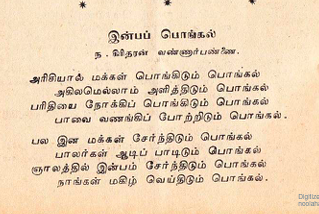 இன்பப் பொங்கல்
ந. கிரிதரன் வண்ணார்பண்ணை.
அரிசியால் மக்கள் பொங்கிடும் பொங்கல்
அகிலமெல்லாம் அளித்திடும் பொங்கல்
பரிதியை நோக்கிப் பொங்கிடும் பொங்கல்
பாவை வணங்கிப் போற்றிடும் பொங்கல்.
பல இன மக்கள் சேர்ந்திடும் பொங்கல்
பாலர்கள் ஆடிப் பாடிடும் பொங்கல்
ஞாலத்தில் இன்பம் சேர்ந்திடும் பொங்கல்
நாங்கள் மகிழ் வெய்திடும் பொங்கல்.